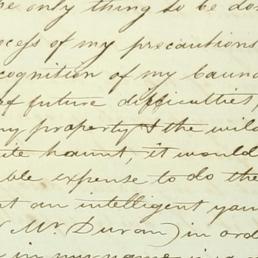 only thing to be do
ocess of my precautions
cognition of my boun
of future difficulties,
my property & the wild
ite haunt, it would
ble expense to do the
t an intelligent
Mr. Duran) in ord
in my name